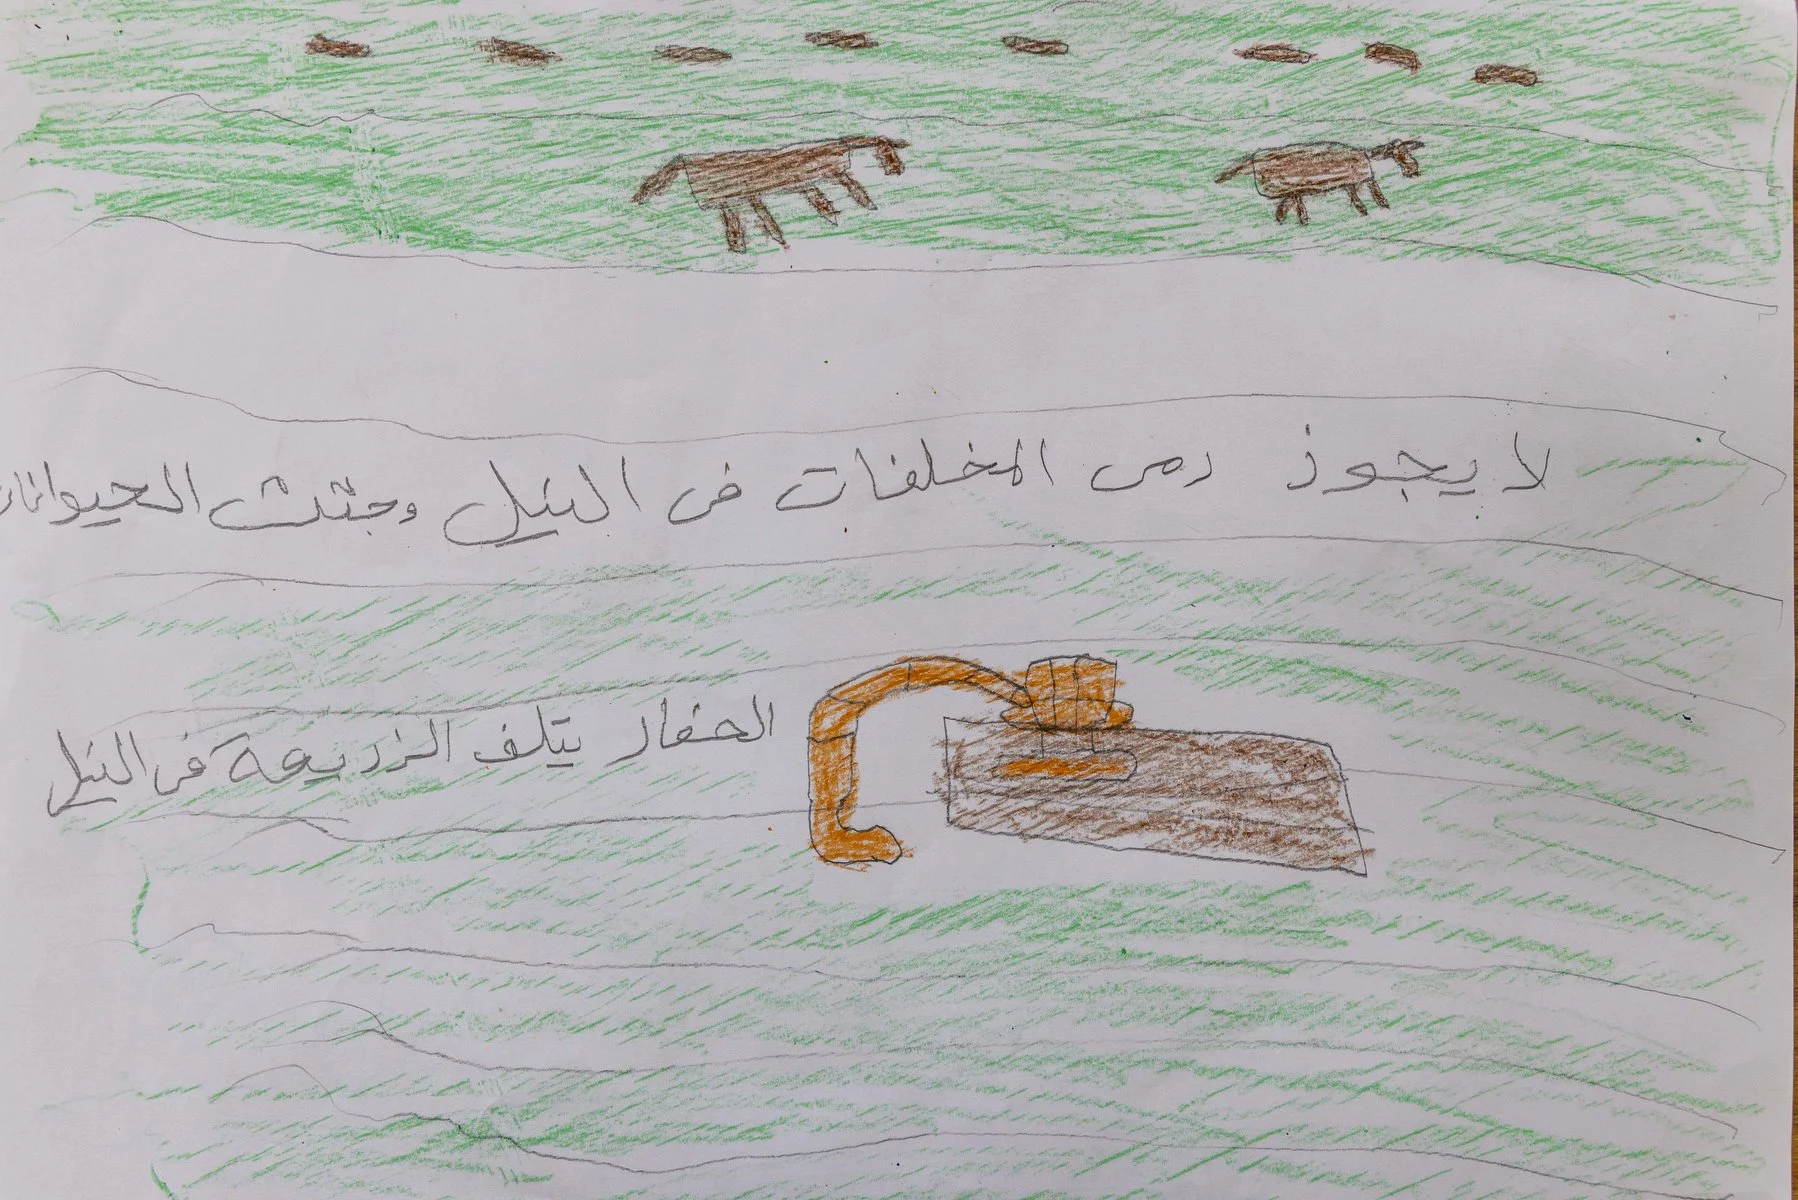 لا يجوز رمى المخلفات فى النيل وجثث الحيوانات
الحفار يتلف الزريعة فى النيل